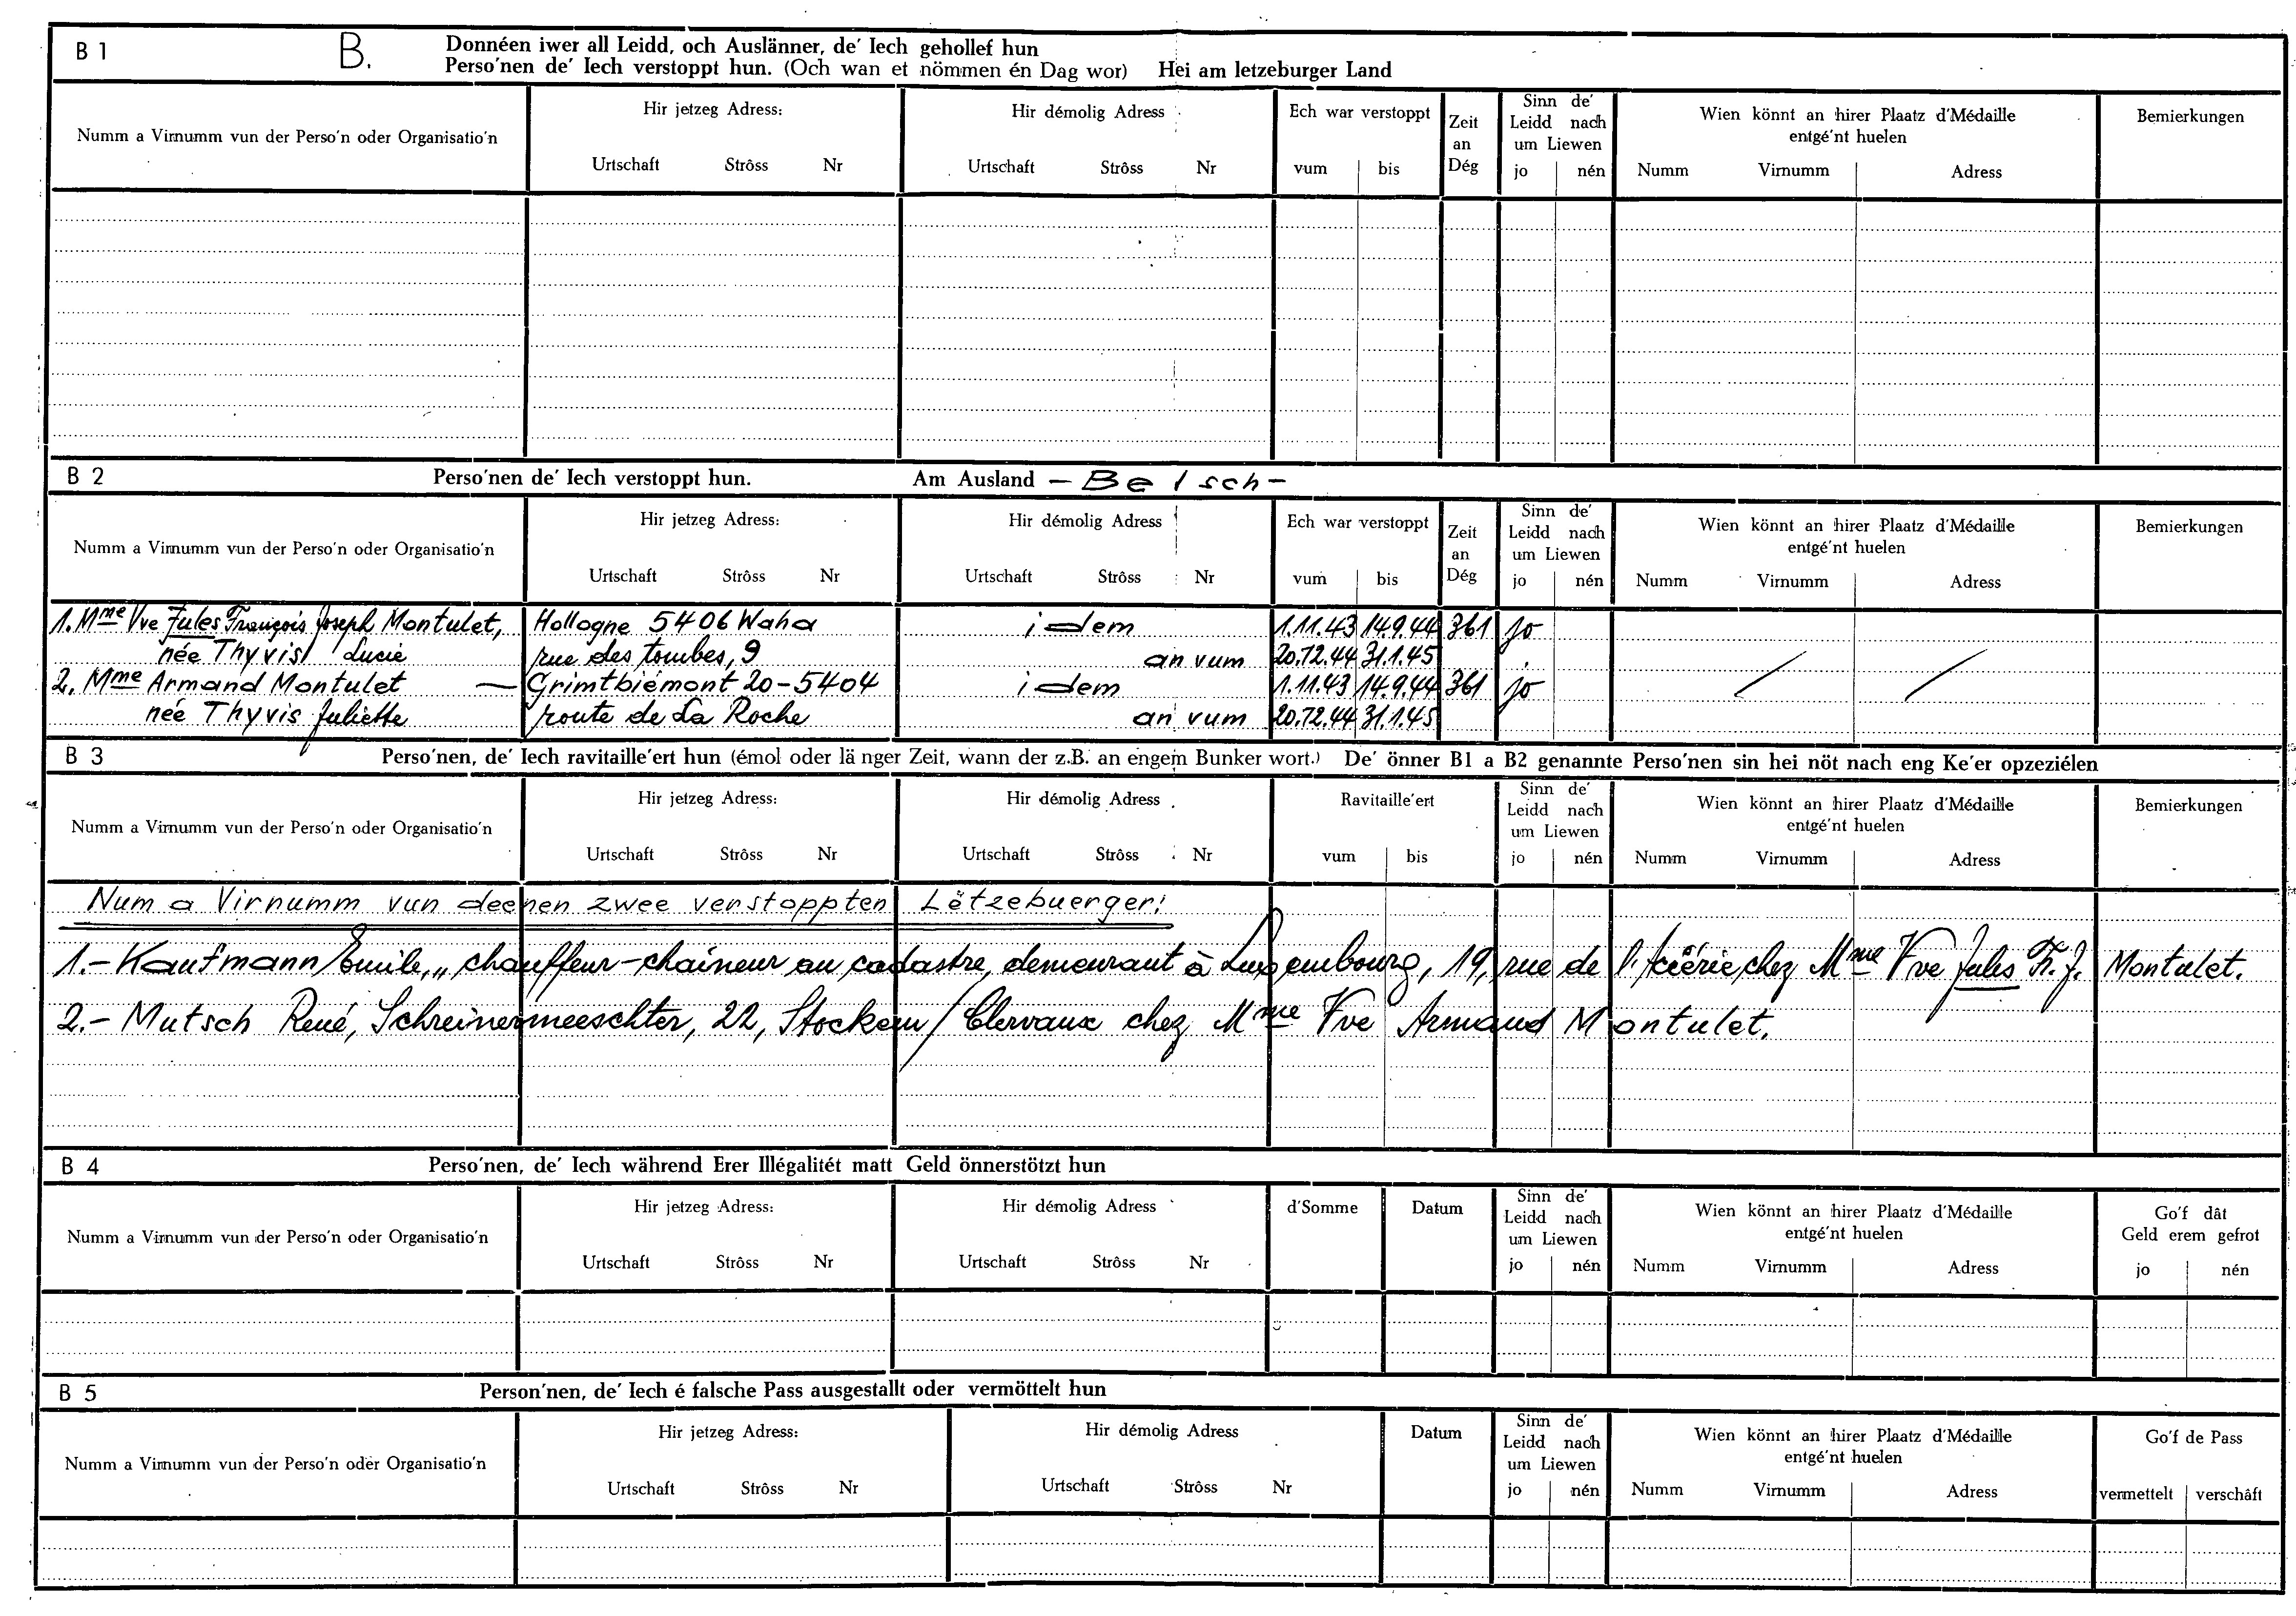 B 1 B. Donnéen iwer all Leidd, och Auslänner, de' Iech gehollef hun
Perso'nen de' Iech verstoppt hun. (Och wan et nömmen én Dag wor) Hei am letzeburger Land
Numm a Virnumm vun der Perso'n oder Organisatio'n
Hir jetzeg Adress:
Urtschaft Strôss Nr
Hir démolig Adress
Urtschaft Strôss Nr
Ech war verstoppt
vum bis
Zeit
an
Dég
Sinn de'
Leidd nach
um Liewen
jo nén
Wien könnt an hirer Plaatz d'Médaille
entgé'nt huelen
Numm Virnumm Adress
Bemierkungen
B 2 Perso'nen de' Iech verstoppt hun. Am Ausland – Belsch –
Numm a Virnumm vun der Perso'n oder Organisatio'n
Hir jetzeg Adress:
Urtschaft Strôss Nr
Hir démolig Adress
Urtschaft Strôss Nr
Ech war verstoppt
vum bis
Zeit
an
Dég
Sinn de'
Leidd nach
um Liewen
jo nén
Wien könnt an hirer Plaatz d'Médaille
entgé'nt huelen
Numm Virnumm Adress
Bemierkungen
1. Mme Vve Jules François Joseph Montulet, Hollogne 5406 Waha idem 1.11.43 14.9.44 361 jo
née Thyvis Lucie rue des tombes, 9 an vum 20.12.44 31.1.45
2. Mme Armand Montulet — Grimbiémont 20-5404 idem 1.11.43 14.9.44 361 jo
née Thyvis Juliette route de La Roche an vum 20.12.44 31.1.45
B 3 Perso'nen, de' Iech ravitaille'ert hun (émol oder länger Zeit, wann der z.B. an engem Bunker wort.) De' önner B1 a B2 genannte Perso'nen sin hei nöt nach eng Ke'er opzeziélen
Numm a Virnumm vun der Perso'n oder Organisatio'n
Hir jetzeg Adress:
Urtschaft Strôss Nr
Hir démolig Adress
Urtschaft Strôss Nr
Ravitaille'ert
vum bis
Sinn de'
Leidd nach
um Liewen
jo nén
Wien könnt an hirer Plaatz d'Médaille
entgé'nt huelen
Numm Virnumm Adress
Bemierkungen
Num a Virnumm vun deenen zwee verstoppten Lëtzebuerger:
1.- Kaufmann Emile, chauffeur-chaîneur au cadastre, demeurant à Luxembourg, 19, rue de l'Aciérie, chez Mme Vve Jules Fr. J. Montulet.
2.- Mutsch René, Schreinermeeschter, 22, Stockem/Clervaux chez Mme Vve Armand Montulet.
B 4 Perso'nen, de' Iech während Erer Illégalitét matt Geld önnerstötzt hun
Numm a Virnumm vun der Perso'n oder Organisatio'n
Hir jetzeg Adress:
Urtschaft Strôss Nr
Hir démolig Adress
Urtschaft Strôss Nr
d'Somme
Datum
Sinn de'
Leidd nach
um Liewen
jo nén
Wien könnt an hirer Plaatz d'Médaille
entgé'nt huelen
Numm Virnumm Adress
Go'f dât
Geld erem gefrot
jo nén
B 5 Person'nen, de' Iech é falsche Pass ausgestallt oder vermöttelt hun
Numm a Virnumm vun der Perso'n oder Organisatio'n
Hir jetzeg Adress:
Urtschaft Strôss Nr
Hir démolig Adress
Urtschaft Strôss Nr
Datum
Sinn de'
Leidd nach
um Liewen
jo nén
Wien könnt an hirer Plaatz d'Médaille
entgé'nt huelen
Numm Virnumm Adress
Go'f de Pass
vermettelt verschâft